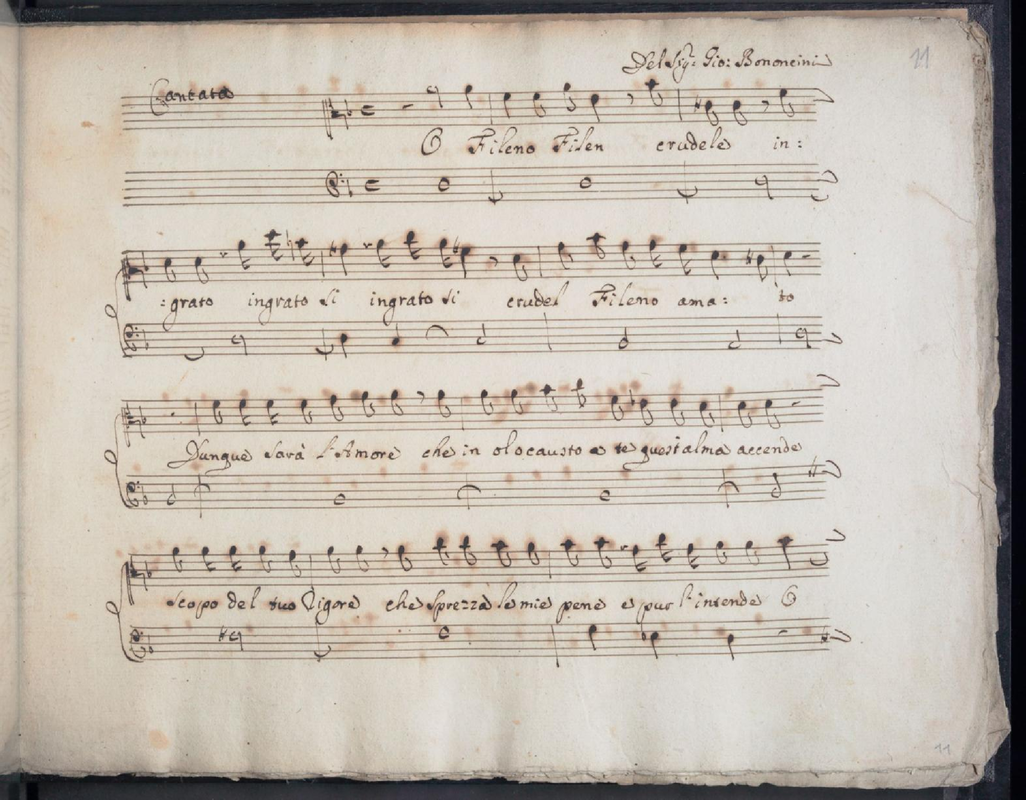 Del Sig.r Gio: Bononcini
11
Cantata
O Fileno Filen crudele in:
:grato ingrato si ingrato si crudel Fileno ama: to
Dunque sarà l'Amore che in olocausto a te quest'alma accende
scopo del tuo Rigore che sprezzà le mie pene e pur l'intende O
11